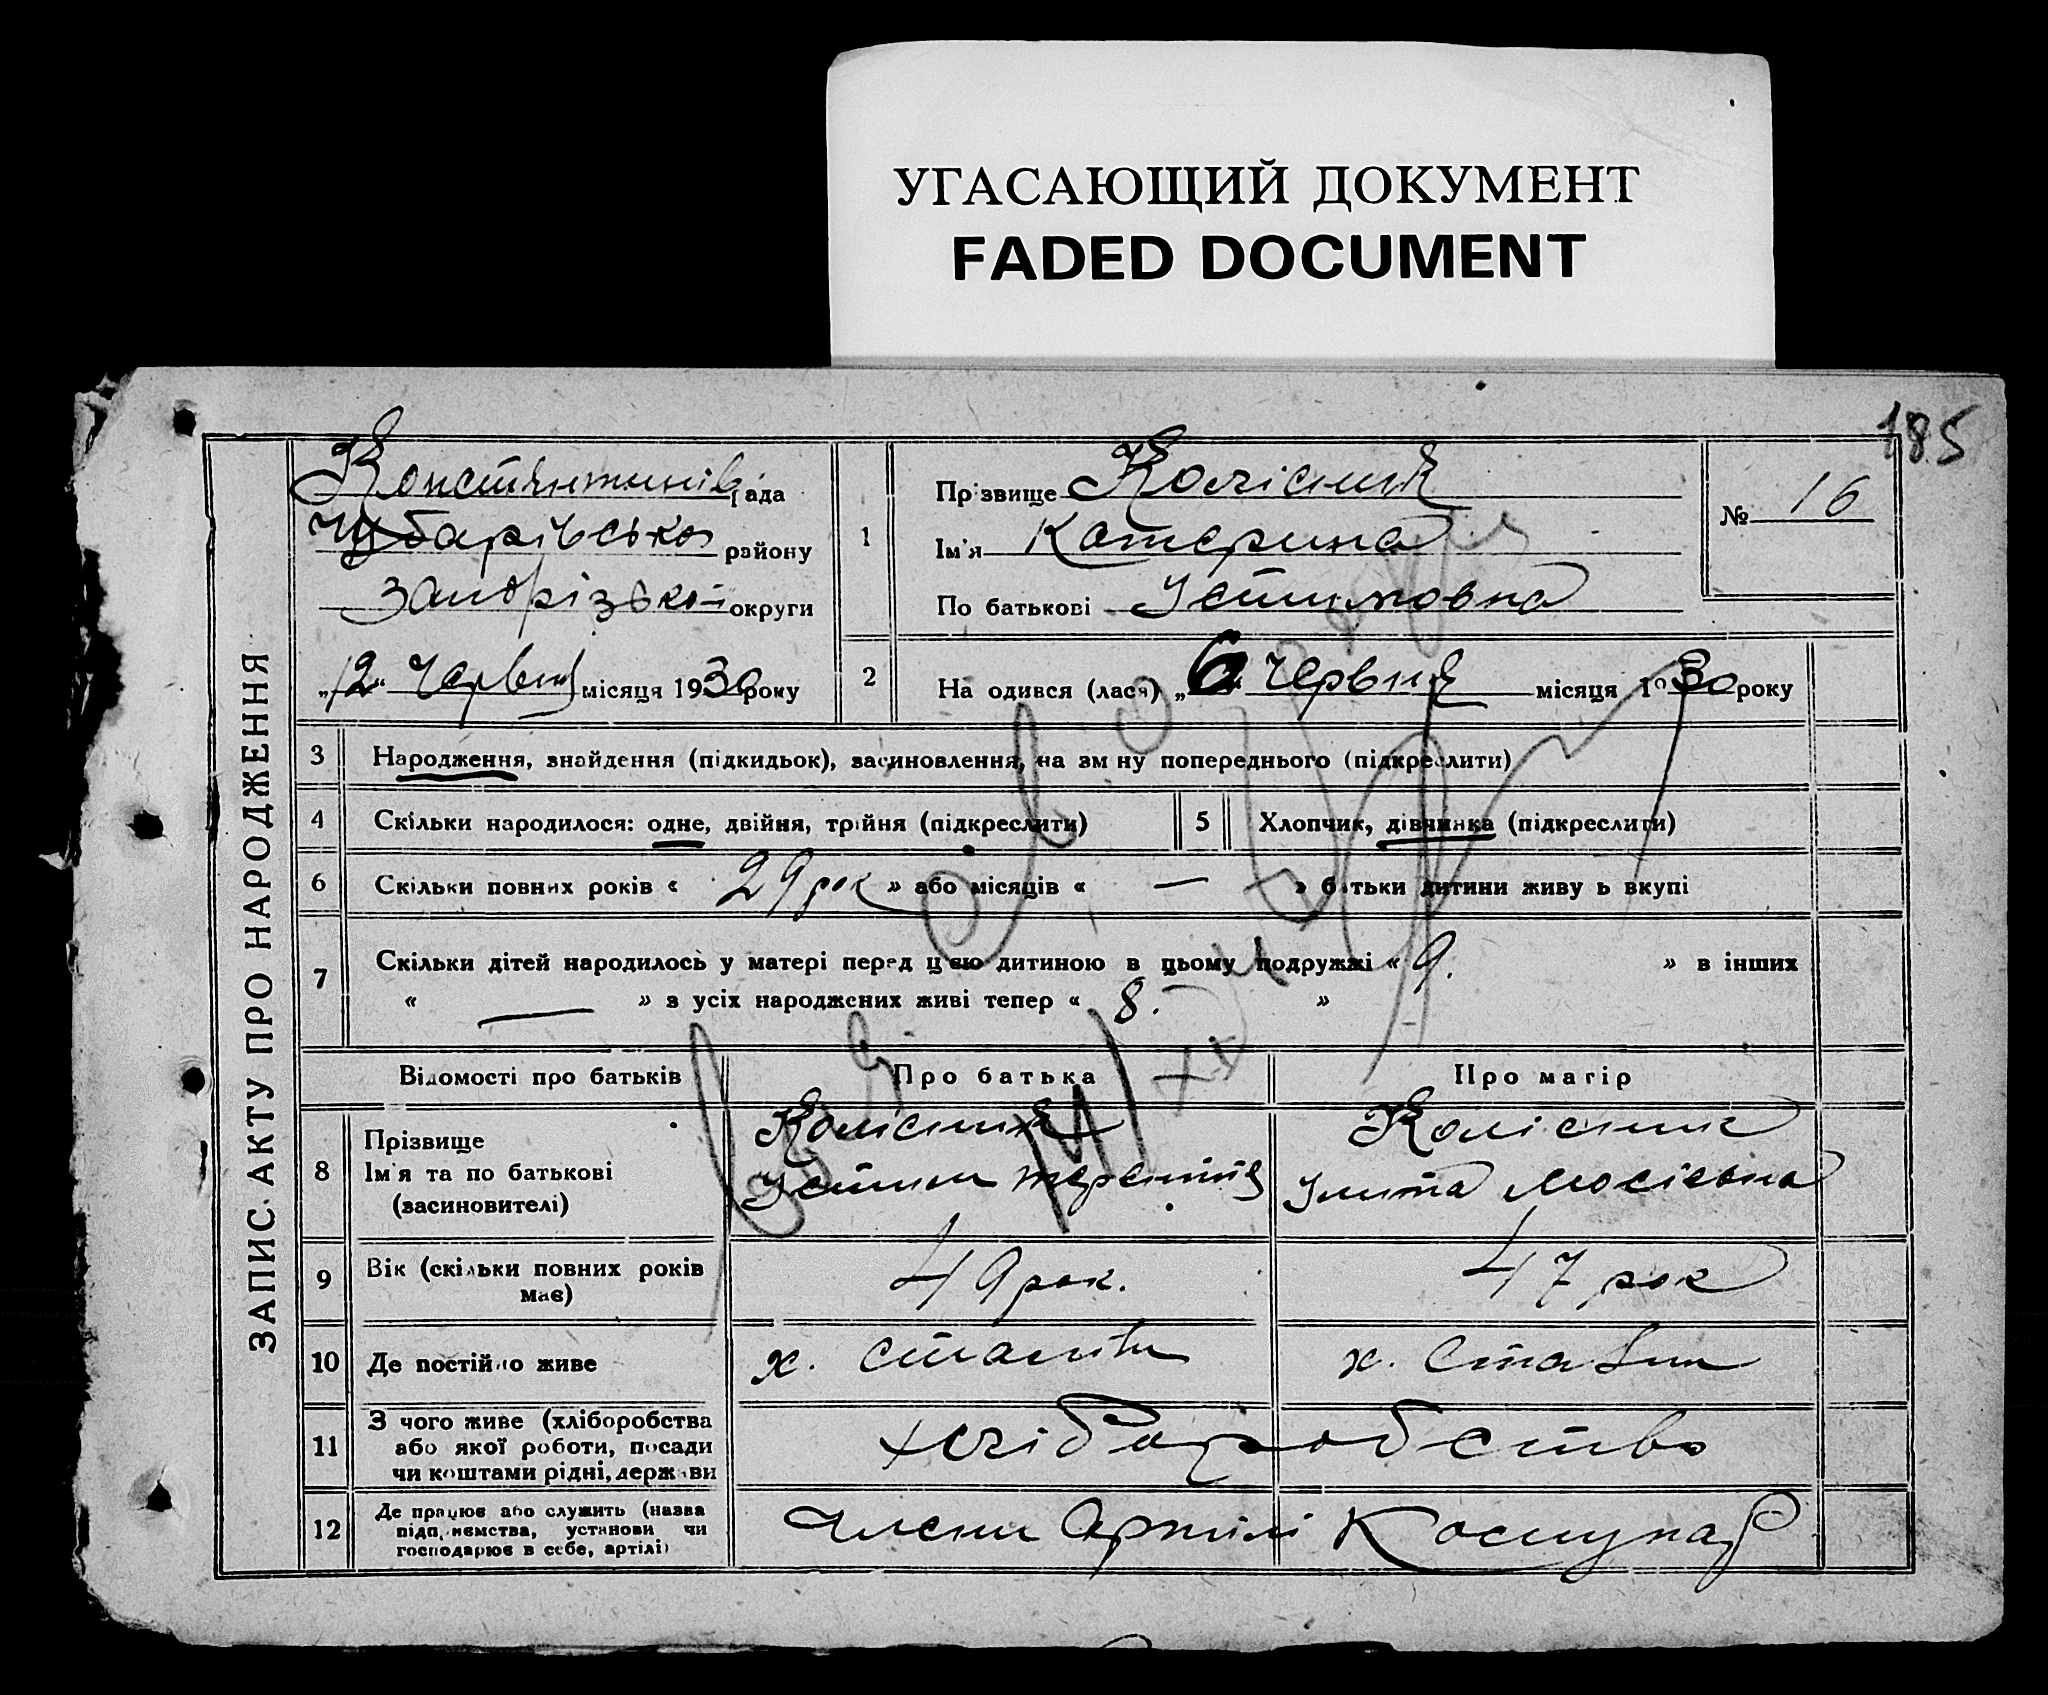 УГАСАЮЩИЙ ДОКУМЕНТ
FADED DOCUMENT
185
ЗАПИС АКТУ ПРО НАРОДЖЕННЯ
Константинів рада
Чубарівсько району
Запорізької округи
„12“ Червня місяця 1930 року
1
Прізвище Колісник
Ім'я Катерина
По батькові Устимовна
№ 16
2
На одився (лася) „6“ Червня місяця 1930 року
3 Народження, знайдення (підкидьок), засиновлення, на зм ну попереднього (підкреслити)
4 Скільки народилося: одне, двійня, трійня (підкреслити) 5 Хлопчик, дівчинка (підкреслити)
6 Скільки повних років « 29 рок » або місяців « — » батьки дитини живу ь вкупі
7 Скільки дітей народилось у матері перед цією дитиною в цьому подружжі « 9. » в інших
« — » з усіх народжених живі тепер « 8. »
Відомості про батьків Про батька Про матір
8 Прізвище
Ім'я та по батькові
(засиновителі)
Колісник
Устим
Колісник
Мосієвна
9 Вік (скільки повних років
має)
49 рок.
47 рок
10 Де постійно живе
х.
х.
11 З чого живе (хліборобства
або якої роботи, посади
чи коштами рідні, держави
хліборобство
12 Де працює або служить (назва
підприємства, установи чи
господарює в себе, артілі)
члени Артілі Комунар